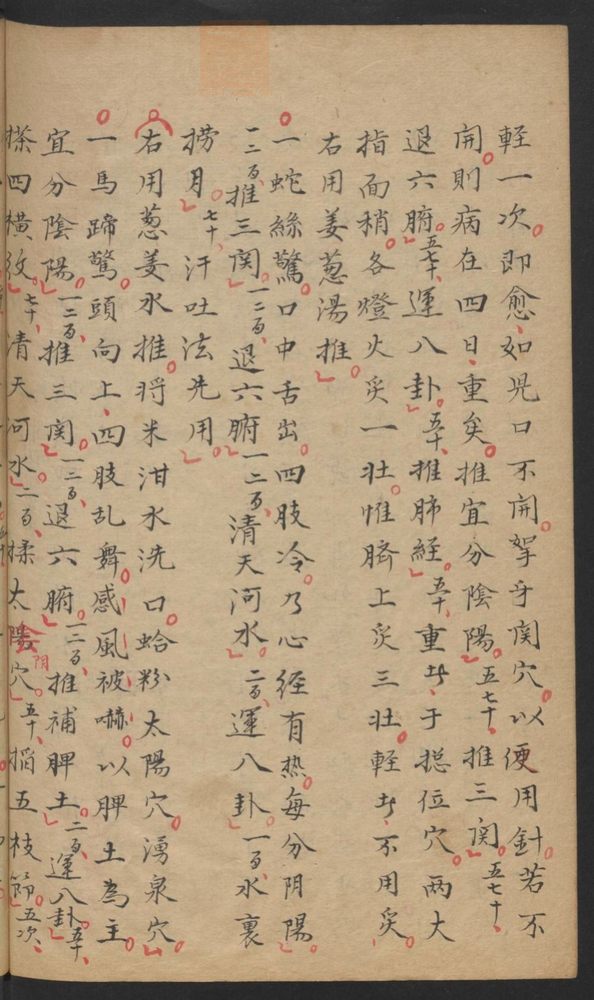 輕一次即愈如児口不開拏牙関穴以便用針若不
開則病在四日重矣推宜分陰陽五七十推三関五七十
退六腑五七十運八卦五十推肺經五十重者于揔位穴两大
指面稍各燈火炙一壮惟臍上炙三壮輕者不用炙
右用姜葱湯推
一蛇絲驚口中舌出四肢冷乃心經有热每分阴陽
一二百推三関一二百退六腑一二百清天河水二百運八卦一百水裏
捞月七十汗吐法先用
右用葱姜水推将米泔水洗口蛤粉太陽穴湧泉穴
一馬蹄驚頭向上四肢乱舞感風被嚇以脾土為主
宜分陰陽一二百推三関一二百退六腑一二百推補脾土二百運八卦五十
搽四横紋七十清天河水二百揉太陽穴五十掐五枝節五次
阴